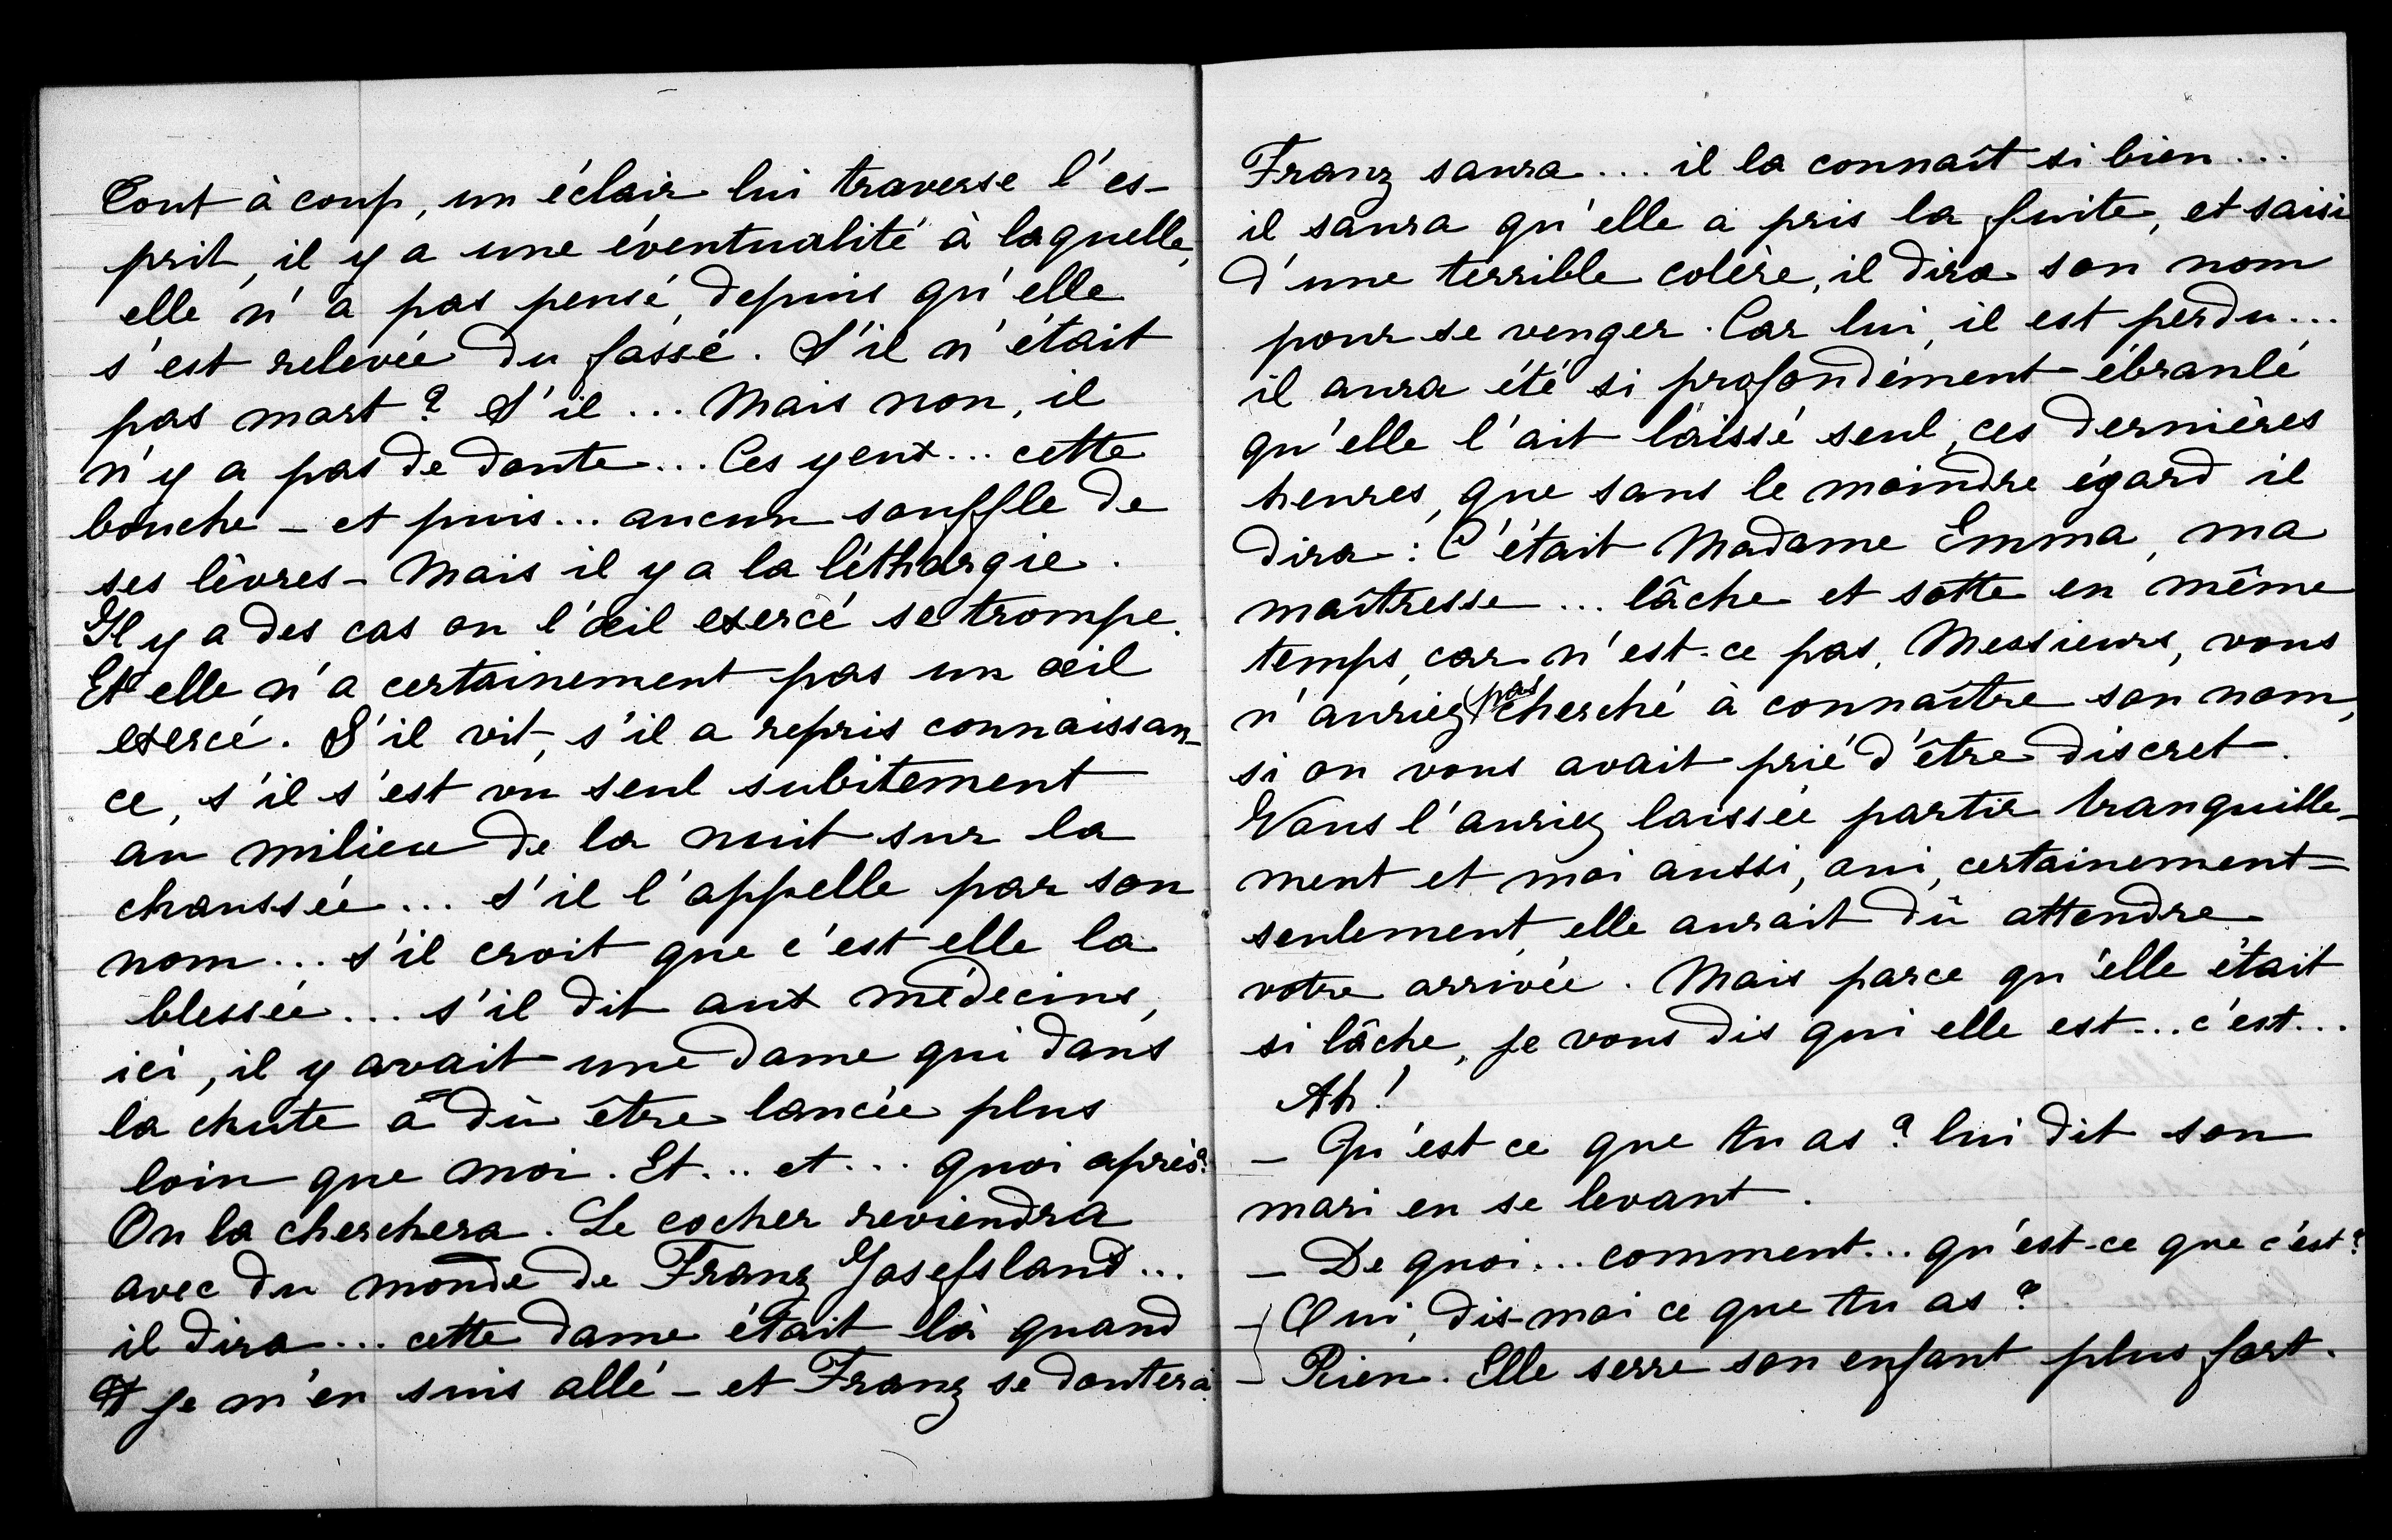 Tout à coup, un éclair lui traverse l'es-
prit, il y a une éventualité à laquelle,
elle n'a pas pensé, depuis qu'elle
s'est relevée du fossé. S'il n'était
pas mort ? S'il ... Mais non, il
n'y a pas de doute ... Ces yeux ... cette
bouche – et puis ... aucun souffle de
ses lèvres – Mais il y a la léthargie.
Il y a des cas ou l'œil exercé se trompe.
Et elle n'a certainement pas un œil
exercé. S'il vit, s'il a repris connaissan-
ce, s'il s'est vu seul subitement
au milieu de la nuit sur la
chaussée ... s'il l'appelle par son
nom ... s'il croit que c'est elle la
blessée ... s'il dit aux médecins,
ici, il y avait une dame qui dans
la chute a dû être lancée plus
loin que moi. Et ... et ... quoi après?
On la cherchera. Le cocher reviendra
avec du monde de Franz Josefsland ...
il dira ... cette dame était là quand
je m'en suis allé – et Franz se doutera.
Franz saura ... il la connaît si bien ...
il saura qu'elle a pris la fuite, et saisi
d'une terrible colère, il dira son nom
pour se venger. Car lui, il est perdu ...
il aura été si profondément ébranlé
qu'elle l'ait laissé seul, ces dernières
heures, que sans le moindre égard il
dira : C'était Madame Emma, ma
maîtresse ... lâche et sotte en même
temps, car n'est-ce pas, Messieurs, vous
n'auriez pas cherché à connaître son nom,
si on vous avait prié d'être discret.
Vous l'auriez laissée partir tranquille-
ment et moi aussi, oui, certainement –
seulement, elle aurait dû attendre
votre arrivée. Mais parce qu'elle était
si lâche, je vous dis qui elle est ... c'est ...
Ah !
– Qu'est ce que tu as ? lui dit son
mari en se levant.
– De quoi ... comment ... qu'est-ce que c'est ?
– Oui, dis-moi ce que tu as ?
– Rien. Elle serre son enfant plus fort.